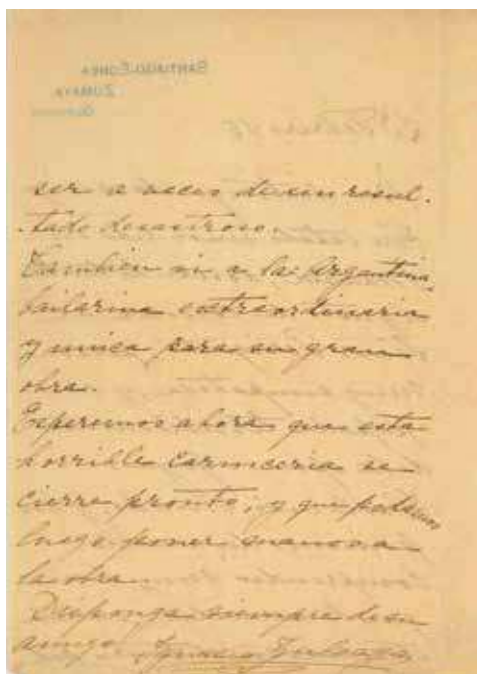 SANTIAGO-ECHEA
ZUMAYA
ser a veces de un resul-
tado desastroso.
Tambien vi, a la Argentina,
bailarina extraordinaria
y unica para su gran
obra.
Esperemos ahora que esta
horrible carniceria se
cierre pronto, y que podamos
luego poner manos a
la obra
Disponga siempre de su
amigo Ignacio Zuloaga